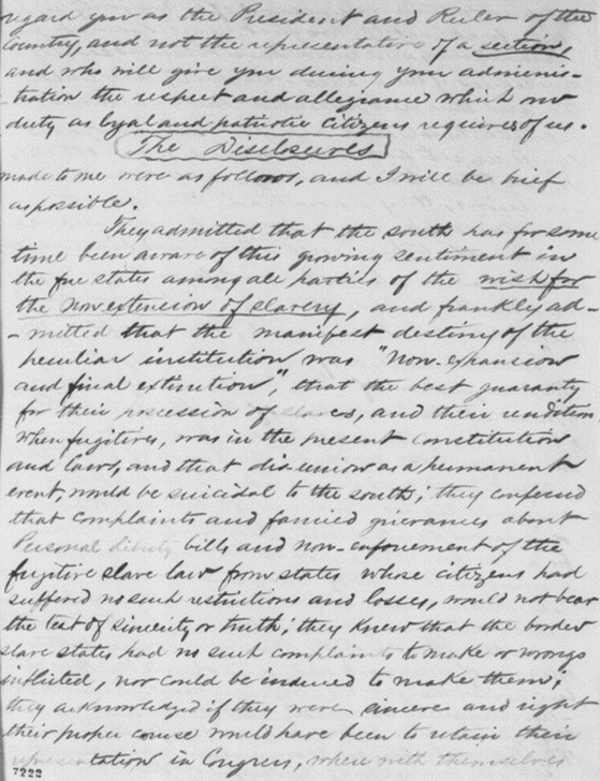 regard you as the President and Ruler of the
Country, and not the representative of a section,
and who will give you during your adminis-
tration the respect and allegiance which our
duty as loyal and patriotic Citizens requires of us.
The Disclosures
made to me were as follows, and I will be brief
as possible.
They admitted that the south has for some
time been aware of this growing sentiment in
the free states among all parties of the wish for
the non extension of slavery, and frankly ad-
- mitted that the manifest destiny of the
peculiar institution was "non-expansion
and final extinction", that the best guaranty
for their possession of slaves, and their rendition
when fugitives, was in the present constitution
and laws, and that disunion as a permanent
event, would be suicidal to the south; they confessed
that complaints and fancied grievances about
Personal liberty bills and non-enforcement of the
fugitive slave law from states whose citizens had
suffered no such restrictions and losses, would not bear
the test of sincerity or truth; they knew that the border
slave states had no such complaints to make or wrongs
inflicted, nor could be induced to make them;
they acknowledged if they were sincere and right
their proper course would have been to retain their
representation in Congress, where with themselves
7222